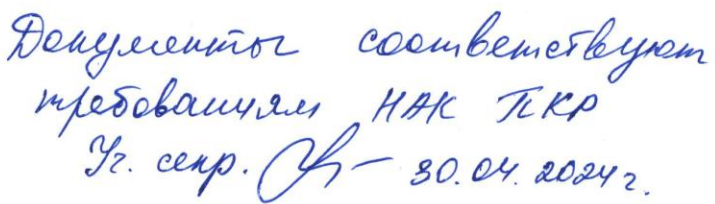 Документы соответствуют
требованиям НАК ПКР
Уч. секр. 30.04.2024г.